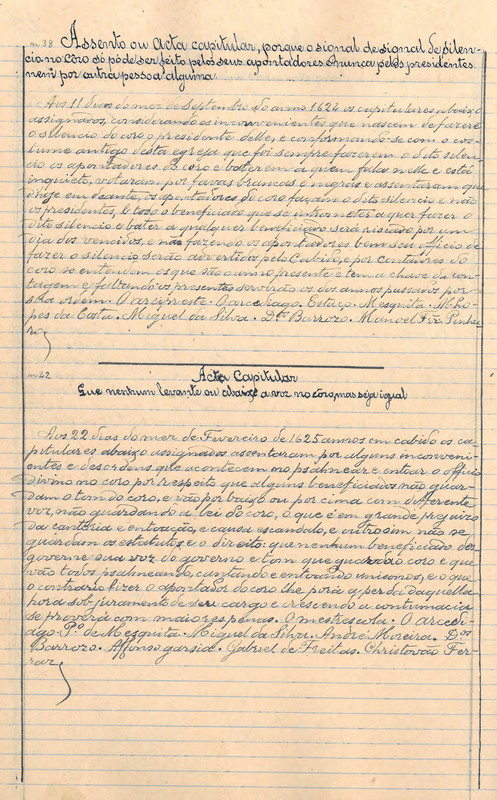 nº 38 Assento ou Acta capitular, porque o signal de signal de silen-
cio no côro só póde ser feito pelos seus apontadores e nunca pelos presidentes
nem por outra pessoa alguma
Aos 11 dias do mez de Septembro do anno 1624 os capitulares abaixo
assignados, considerando os inconvenientes que nascem de fazerem
o silencio do coro o presidente delle, e conformando-se com o cos-
tume antigo desta egreja que foi sempre fazerem o dito silen-
cio os apontadores do coro e baterem a quem falas nelle e estái
inquieto, votaram por favas brancas e negras e assentaram que
d'hoje em deante, os apontadores do coro façam o dito silencio e não
os presidentes, e todo o beneficiado que se intrometer a quer fazer o
dito silencio e bater a qualquer beneficiado será riscado por um
dia dos vencidos, e não fazendo os apontadores bem seu officio de
fazer o silencio, serão advertidos pelo Cabido, e por contadores do
coro se entendem os que são o anno presente e tem a chave da con-
tagem e faltando os presentes servirão os dos annos passados por
sua ordem. O arcipreste. O arcediago. Estaço. Mesquita. M. Lo-
pes da Costa. Miguel da Silva. Dos Barrozo. Manoel Frz Pinhei-
ro
nº 42
Acta Capitular
Que nenhum levante ou abaixe a voz no côro, mas seja igual
Aos 22 dias do mez de Fevereiro de 1625 annos em cabido os ca-
pitulares abaixo assignados assentaram por alguns inconveni-
entes e desordens que acontecem no psalmear e entoar o officio
divino no coro por respeito que alguns beneficiados não guar-
dam o tom do coro, e vão por baixo ou por cima com differente
voz, não guardando a lei do coro, o que é em grande prejuizo
da cantoria e entoação, e causa escandalo, e outrosim não se
guardam os estatutos e o direito: que nenhum beneficiado des-
governe sua voz do governo e tom que guarda o coro e que
vão todos psalmeando, cantando e entoando unisonos, e o que
o contrario fizer o apontador do coro lhe porá a perda daquella
hora sob juramento de seu cargo e crescendo a contumacia
se proverá com maiores penas. O mestrescola. O arcedi-
ago. Pº de Mesquita. Miguel da Silva. André Moreira. Dos
Barrozo. Affonso garsia. Gabriel de Freitas. Christovão Fer-
raz